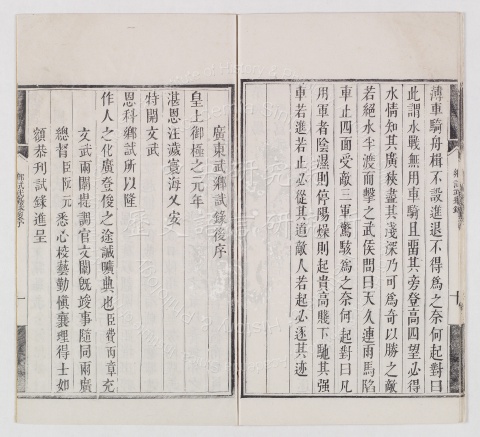 溥車騎舟楫不設進退不得為之奈何起對曰
此謂水戰無用車騎且留其旁登高四望必得
水情知其廣狹盡其淺深乃可為奇以勝之敵
若絕水半渡而擊之武侯問曰天久連雨馬陷
車止四面受敵三軍驚駭為之奈何起對曰凡
用車者陰濕則停陽燥則起貴高賤下馳其强
車若進若止必從其道敵人若起必逐其迹
廣東武鄉試錄後序
皇上御極之元年
湛恩汪濊寰海乂安
特開文武
恩科鄉試所以隆
作人之化廣登俊之途誠曠典也臣費丙章充
文武兩闈提調官文闈既竣事隨同兩廣
總督臣阮元悉心校藝勤慎襄理得士如
額恭刊試錄進呈